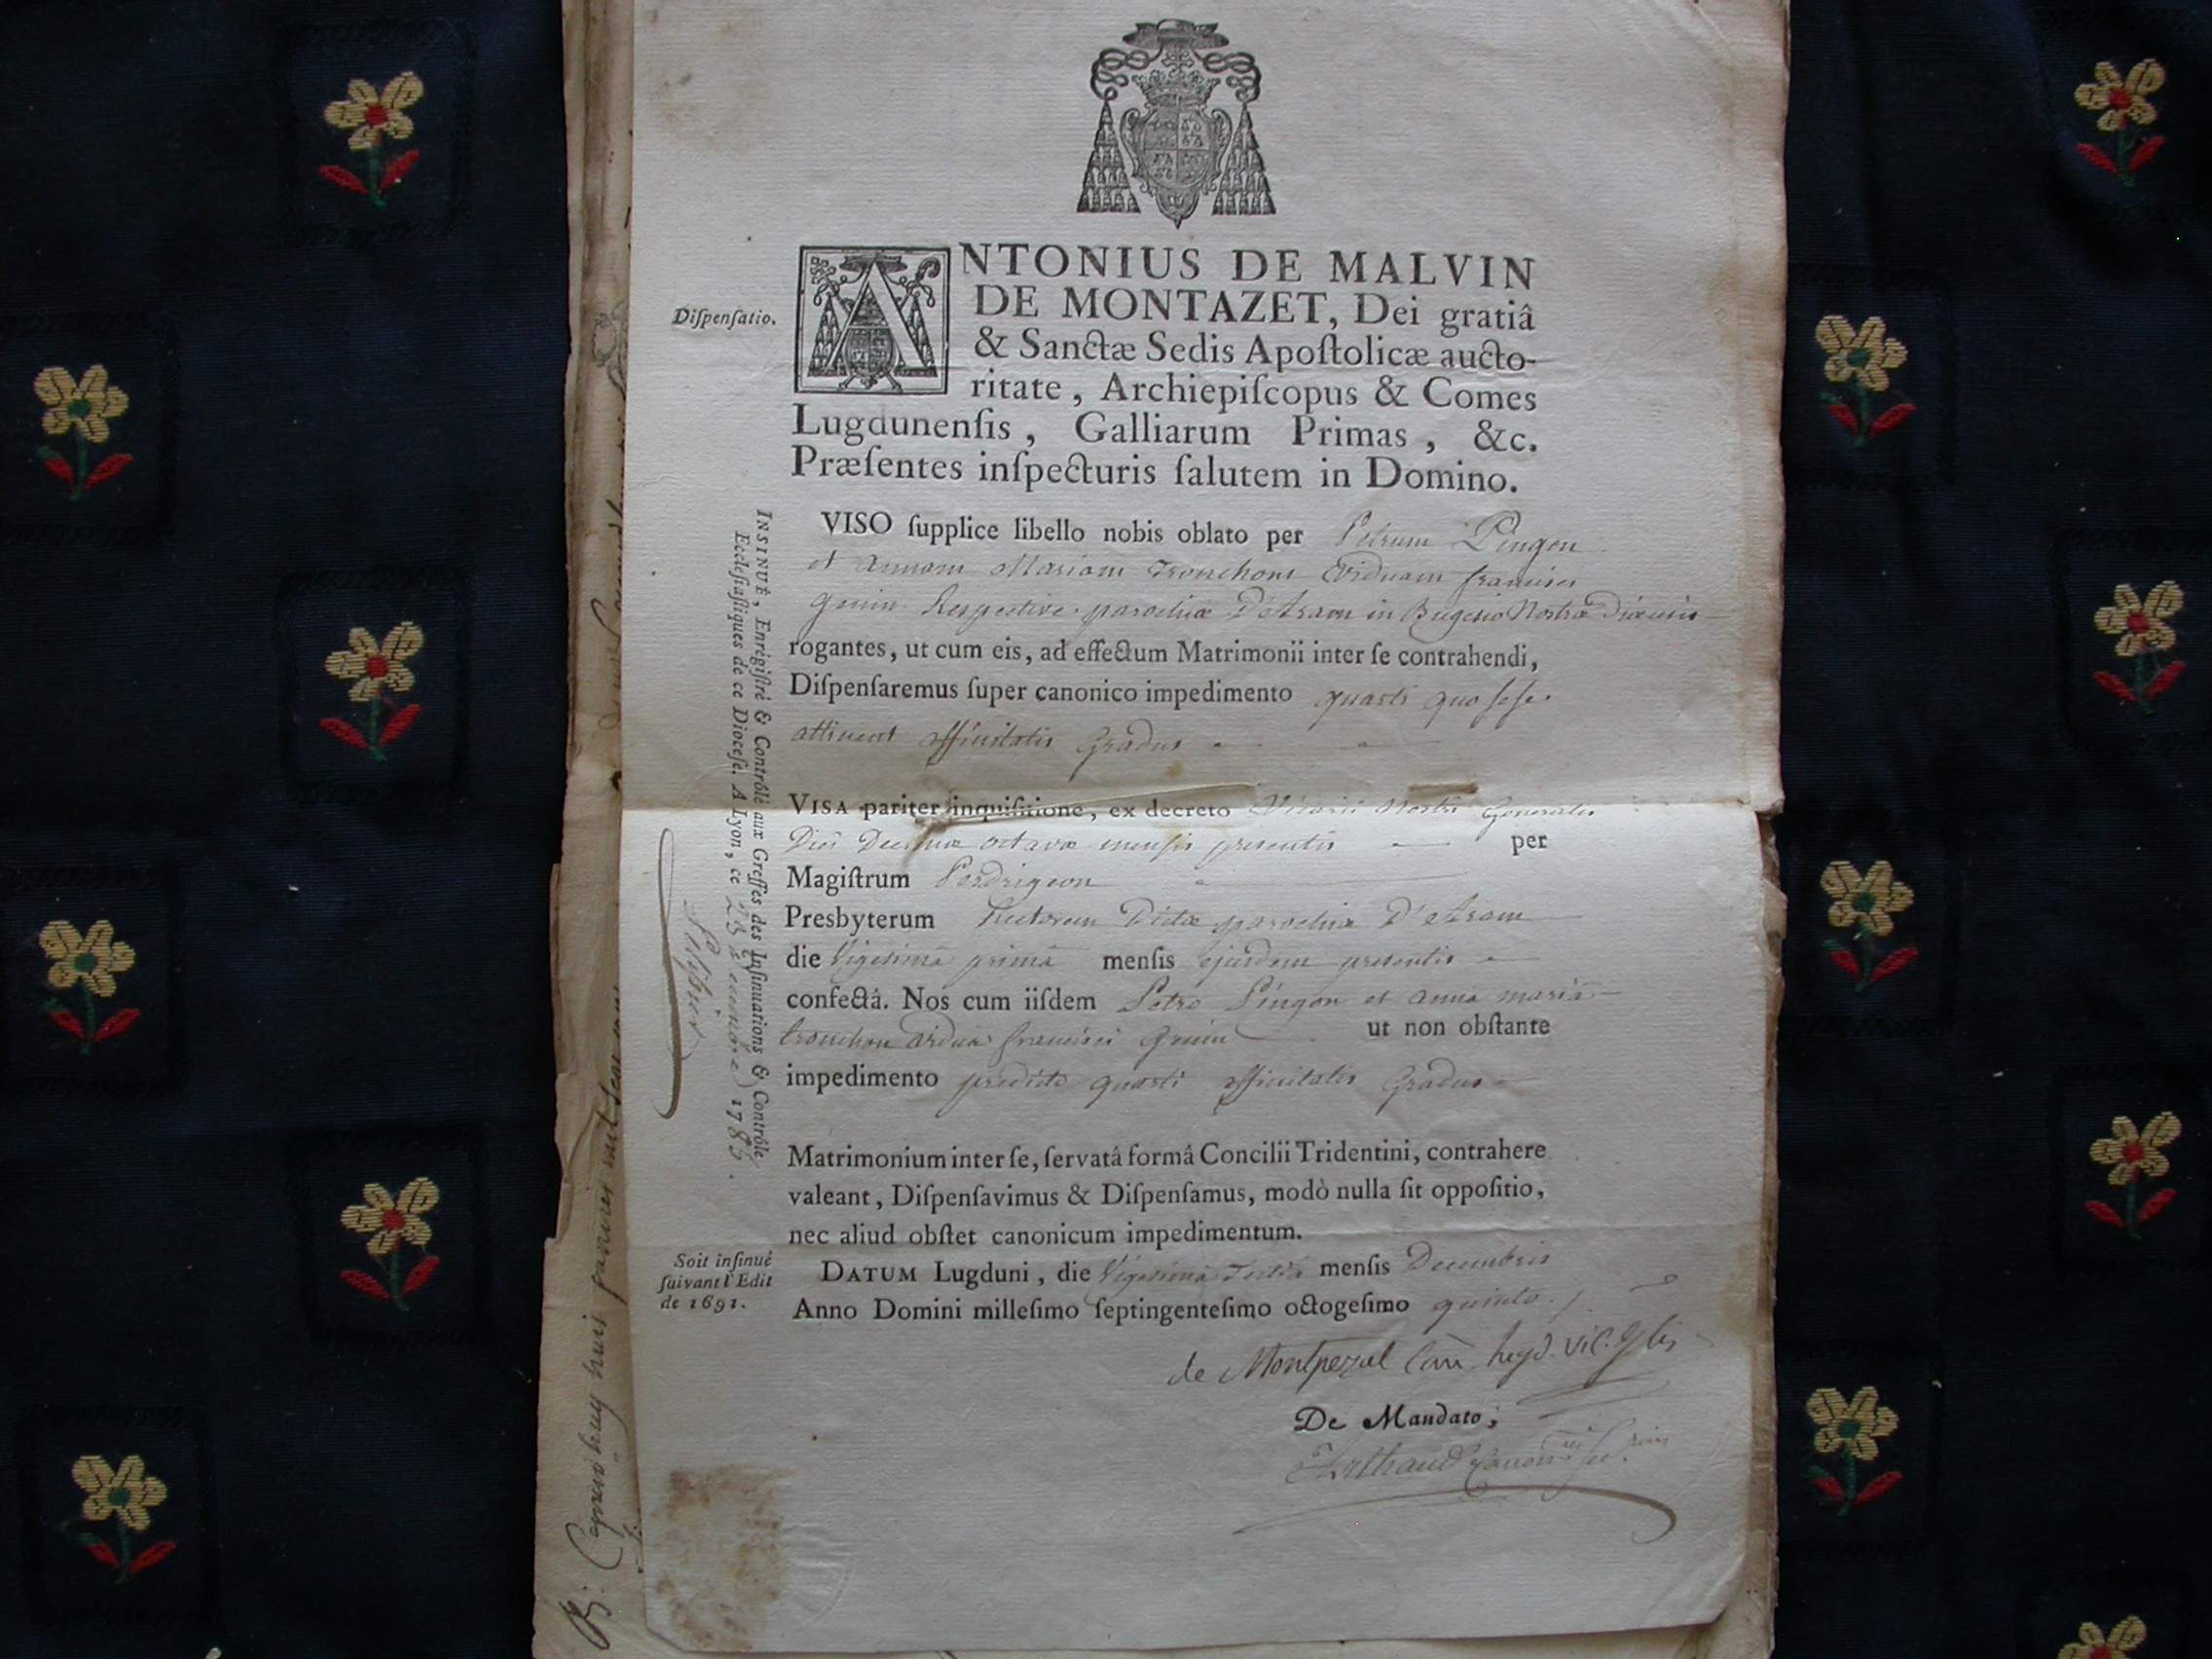 Diſpenſatio.
ANTONIUS DE MALVIN
DE MONTAZET, Dei gratiâ
& Sanctæ Sedis Apoſtolicæ aucto-
ritate, Archiepiſcopus & Comes
Lugdunenſis, Galliarum Primas, &c.
Præſentes inſpecturis ſalutem in Domino.
VISO ſupplice libello nobis oblato per Petrum Pingon
et annam Mariam Tronchon Viduam francisci
genin Respective parochiæ D'Aram in Bugesio Nostræ Diœcesis
rogantes, ut cum eis, ad effectum Matrimonii inter ſe contrahendi,
Diſpenſaremus ſuper canonico impedimento quarti quo ſeſe
attinent affinitatis Gradus
VISA pariter inquiſitione, ex decreto Vicarii Nostri Generalis
Diei Decimæ octavæ mensis presentis per
Magiſtrum Perdrigeon
Presbyterum Rectorem Dictæ parochiæ D'Aram
die Vigesimâ primâ menſis ejusdem presentis
confectâ. Nos cum iiſdem Petro Pingon et annâ mariâ
tronchon viduâ francisci Genin ut non obſtante
impedimento predicto quarti affinitatis Gradus
Matrimonium inter ſe, ſervatâ formâ Concilii Tridentini, contrahere
valeant, Diſpenſavimus & Diſpenſamus, modò nulla ſit oppoſitio,
nec aliud obſtet canonicum impedimentum.
DATUM Lugduni, die Vigesimâ Tertiâ menſis Decembris
Anno Domini milleſimo ſeptingenteſimo octogeſimo quinto
de Montpezat Can. Lugd. Vic. Glis
De Mandato;
INSINUÉ, Enrégiſtré & Contrôlé aux Greffes des Inſinuations & Contrôle
Eccléſiaſtiques de ce Dioceſe. A Lyon, ce 23 Decembre 1785.
Soit inſinué
ſuivant l'Edit
de 1691.